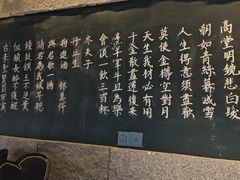 高堂明鏡悲白髮
朝如青絲暮成雪
人生得意須盡歡
莫使金樽空對月
天生我材必有用
千金散盡還復來
烹羊宰牛且為樂
會須一飲三百杯
岑夫子
丹丘生
將進酒 杯莫停
與君歌一曲
請君為我傾耳聽
鐘鼓饌玉不足貴
但願長醉不復醒
古來聖賢皆寂